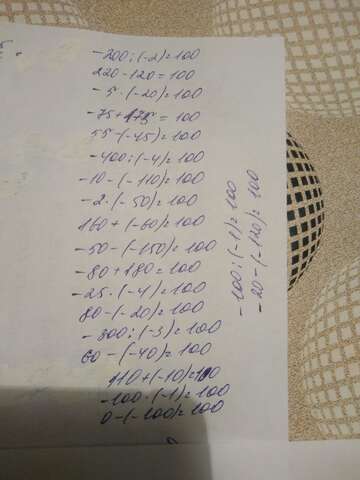 -200:(-2)=100
220-120=100
-5·(-20)=100
-75+175=100
55-(-45)=100
-400:(-4)=100
-10-(-110)=100
-2·(-50)=100
160+(-60)=100
-50-(-150)=100
-80+180=100
-25·(-4)=100
80-(-20)=100
-300:(-3)=100
60-(-40)=100
110+(-10)=100
-100·(-1)=100
0-(-100)=100
-100:(-1)=100
-20-(-120)=100